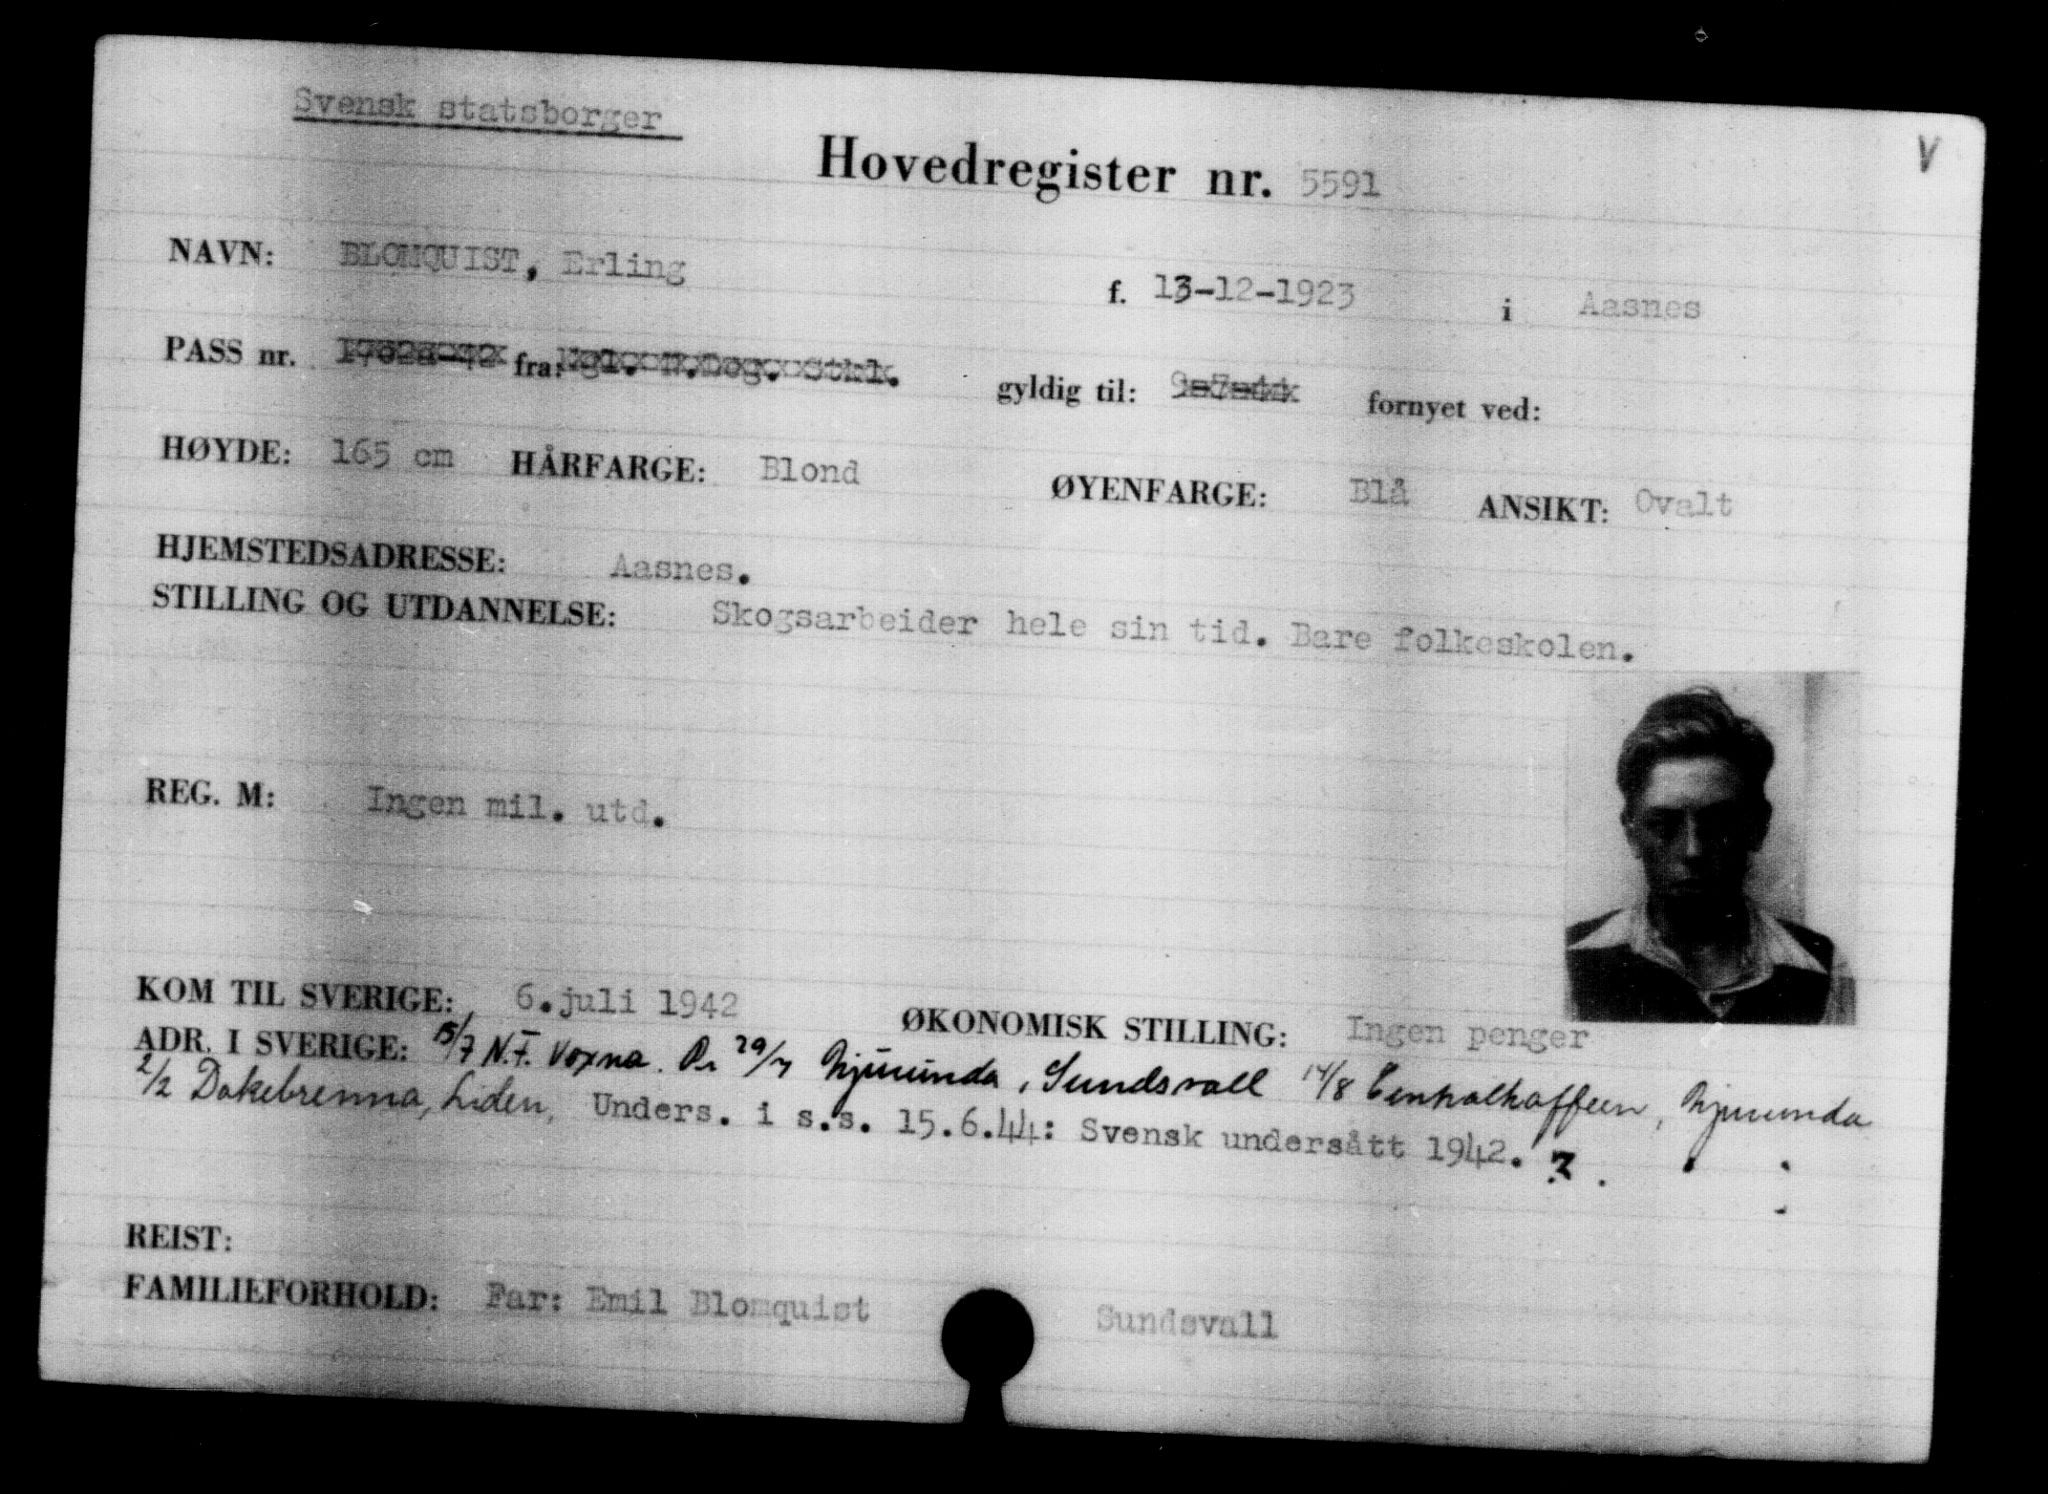 Svensk statsborger
Hovedregister nr. 5591
V
NAVN: BLOMQUIST, Erling f. 13-12-1923 i Aasnes
PASS nr. fra: gyldig til: 9-7-44 fornyet ved:
HØYDE: 165 cm HÅRFARGE: Blond ØYENFARGE: Blå ANSIKT: Ovalt
HJEMSTEDSADRESSE: Aasnes.
STILLING OG UTDANNELSE: Skogsarbeider hele sin tid. Bare folkeskolen.
REG. M: Ingen mil. utd.
KOM TIL SVERIGE: 6.juli 1942 ØKONOMISK STILLING: Ingen penger
ADR. I SVERIGE: 15/7 N.F. Voxna. Pr 29/7 Njurunda, Sundsvall 14/8 Centralkaffeen, Njurunda
2/2 Dakebrenna, Liden, Unders. i s.s. 15.6.44: Svensk undersått 1942. ?
REIST:
FAMILIEFORHOLD: Far: Emil Blomquist Sundsvall